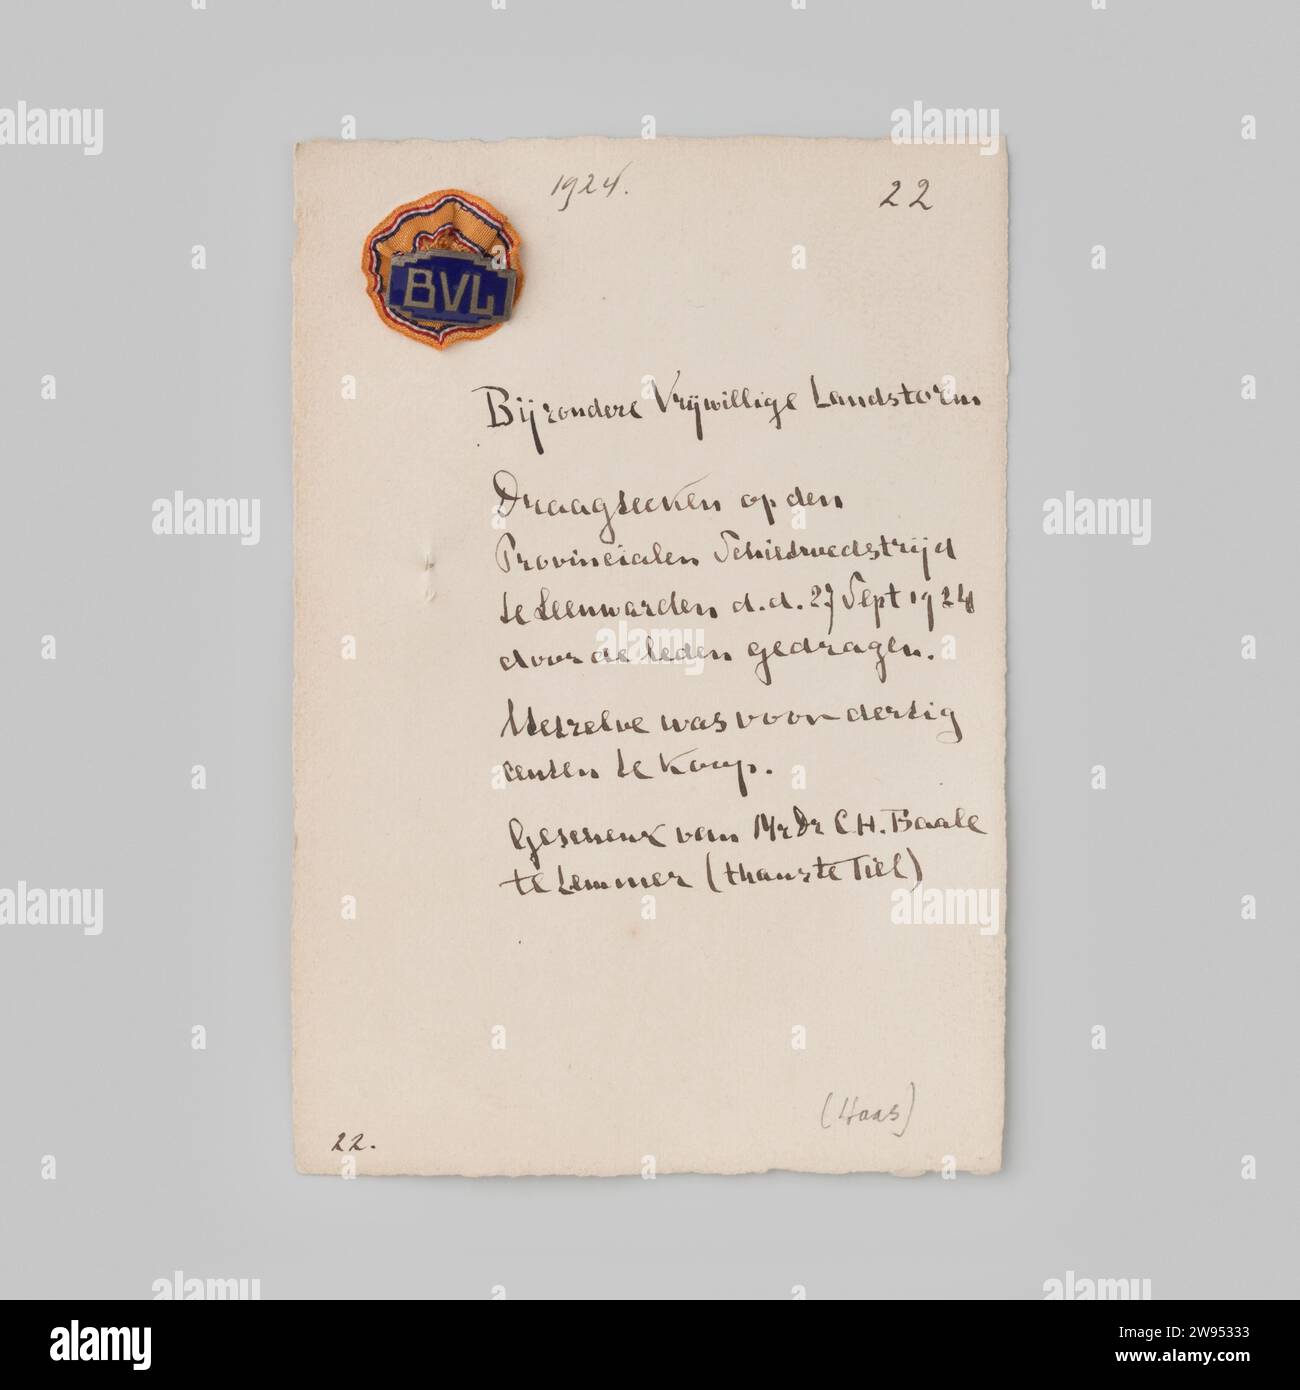 1924.
22
BVL
Bijzondere Vrijwillige Landstorm
Draagteeken op den
Provincialen Schietwedstrijd
te Leeuwarden d.d. 27 Sept 1924
door de leden gedragen.
Hetzelve was voor dertig
centen te koop.
Geschenk van Mr Dr C.H. Baale
te Lemmer (thans te Tiel)
(Haas)
22.
alamy
Image ID: 2W95333
www.alamy.com